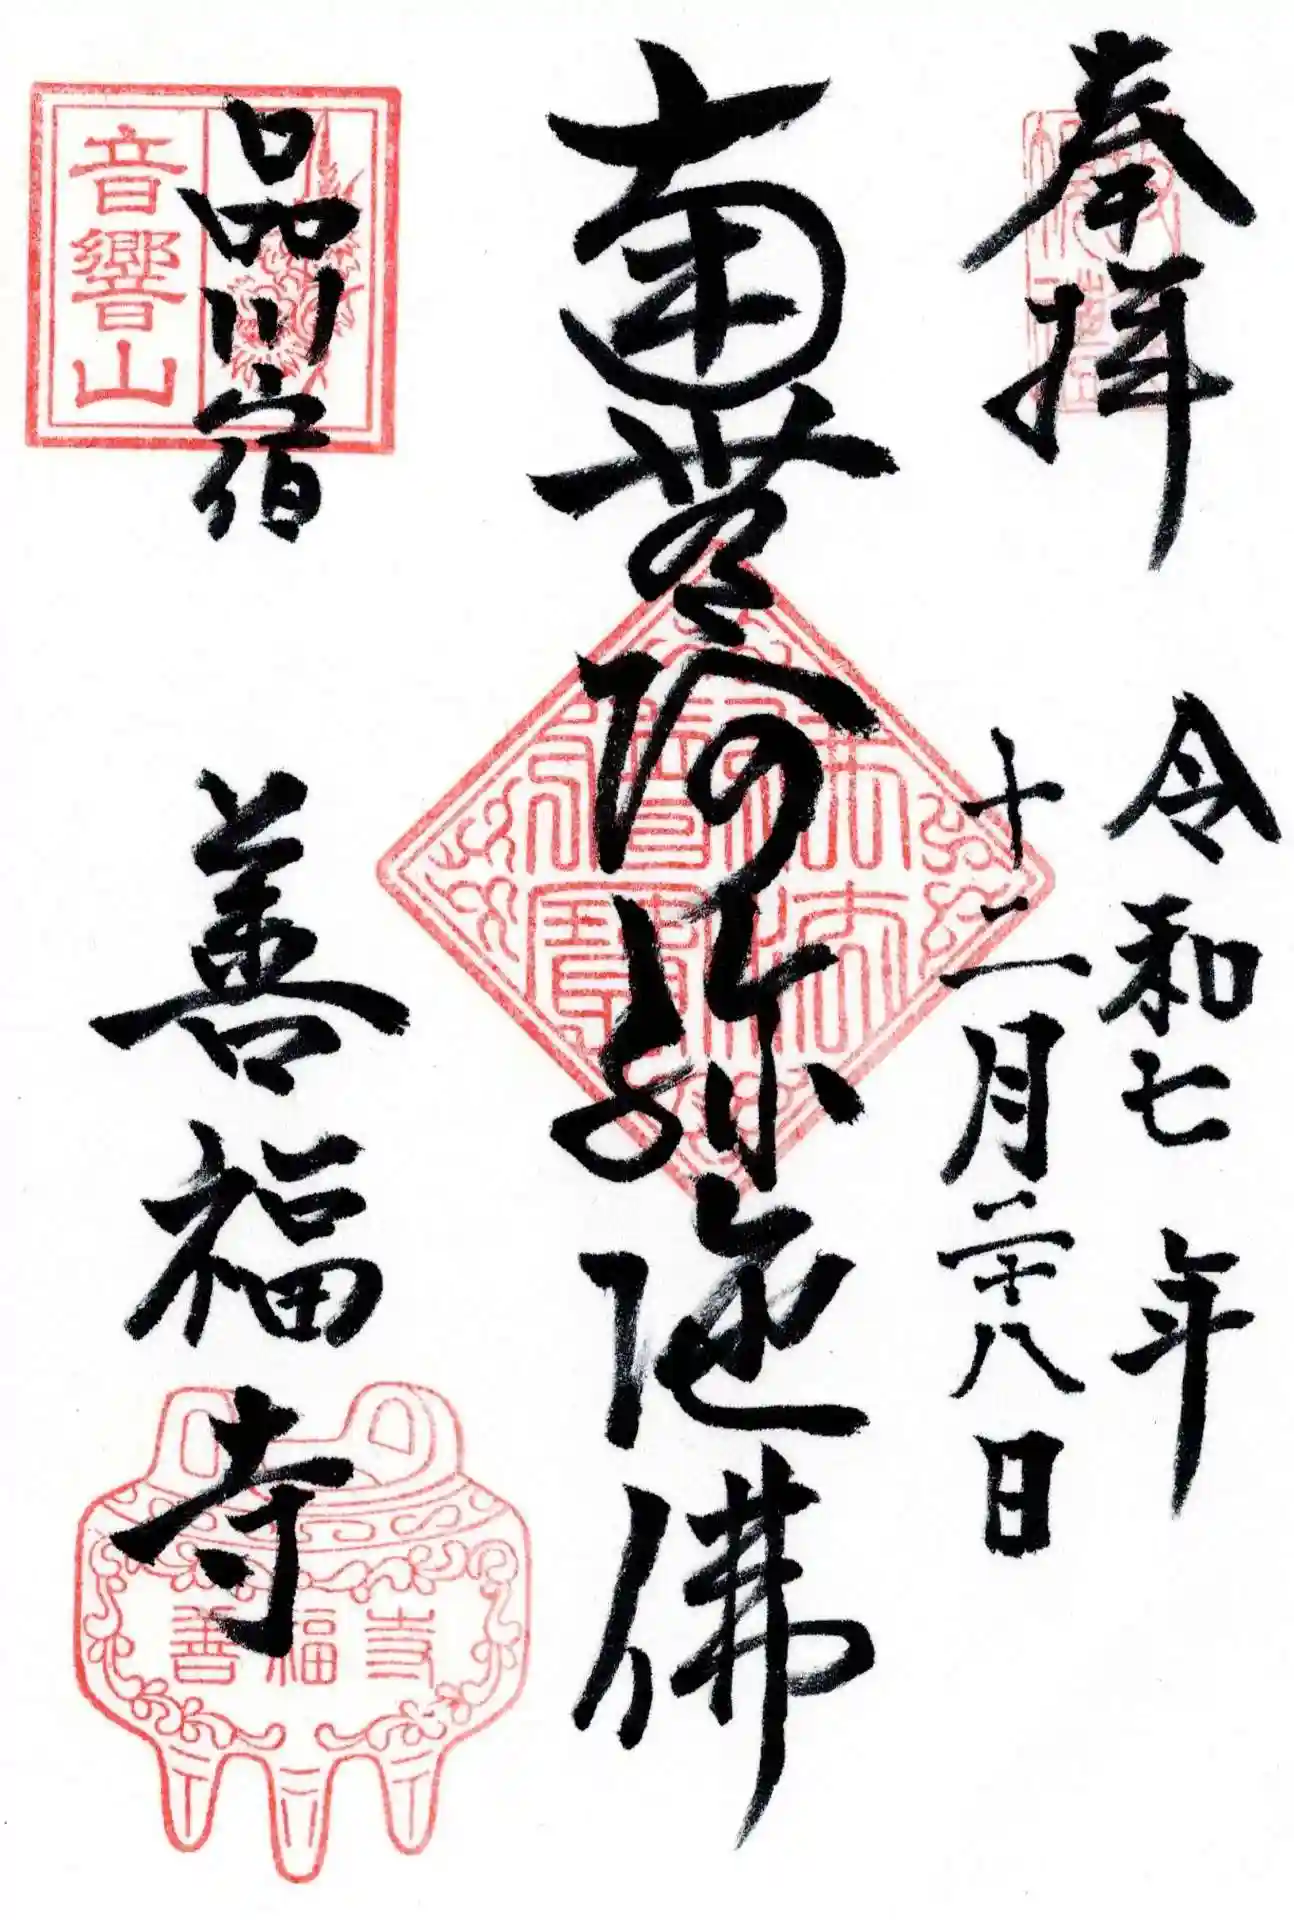 奉拝
令和七年
十二月二十八日
南無阿弥陀佛
品川宿
善福寺
音響山
佛法僧寶
善福寺